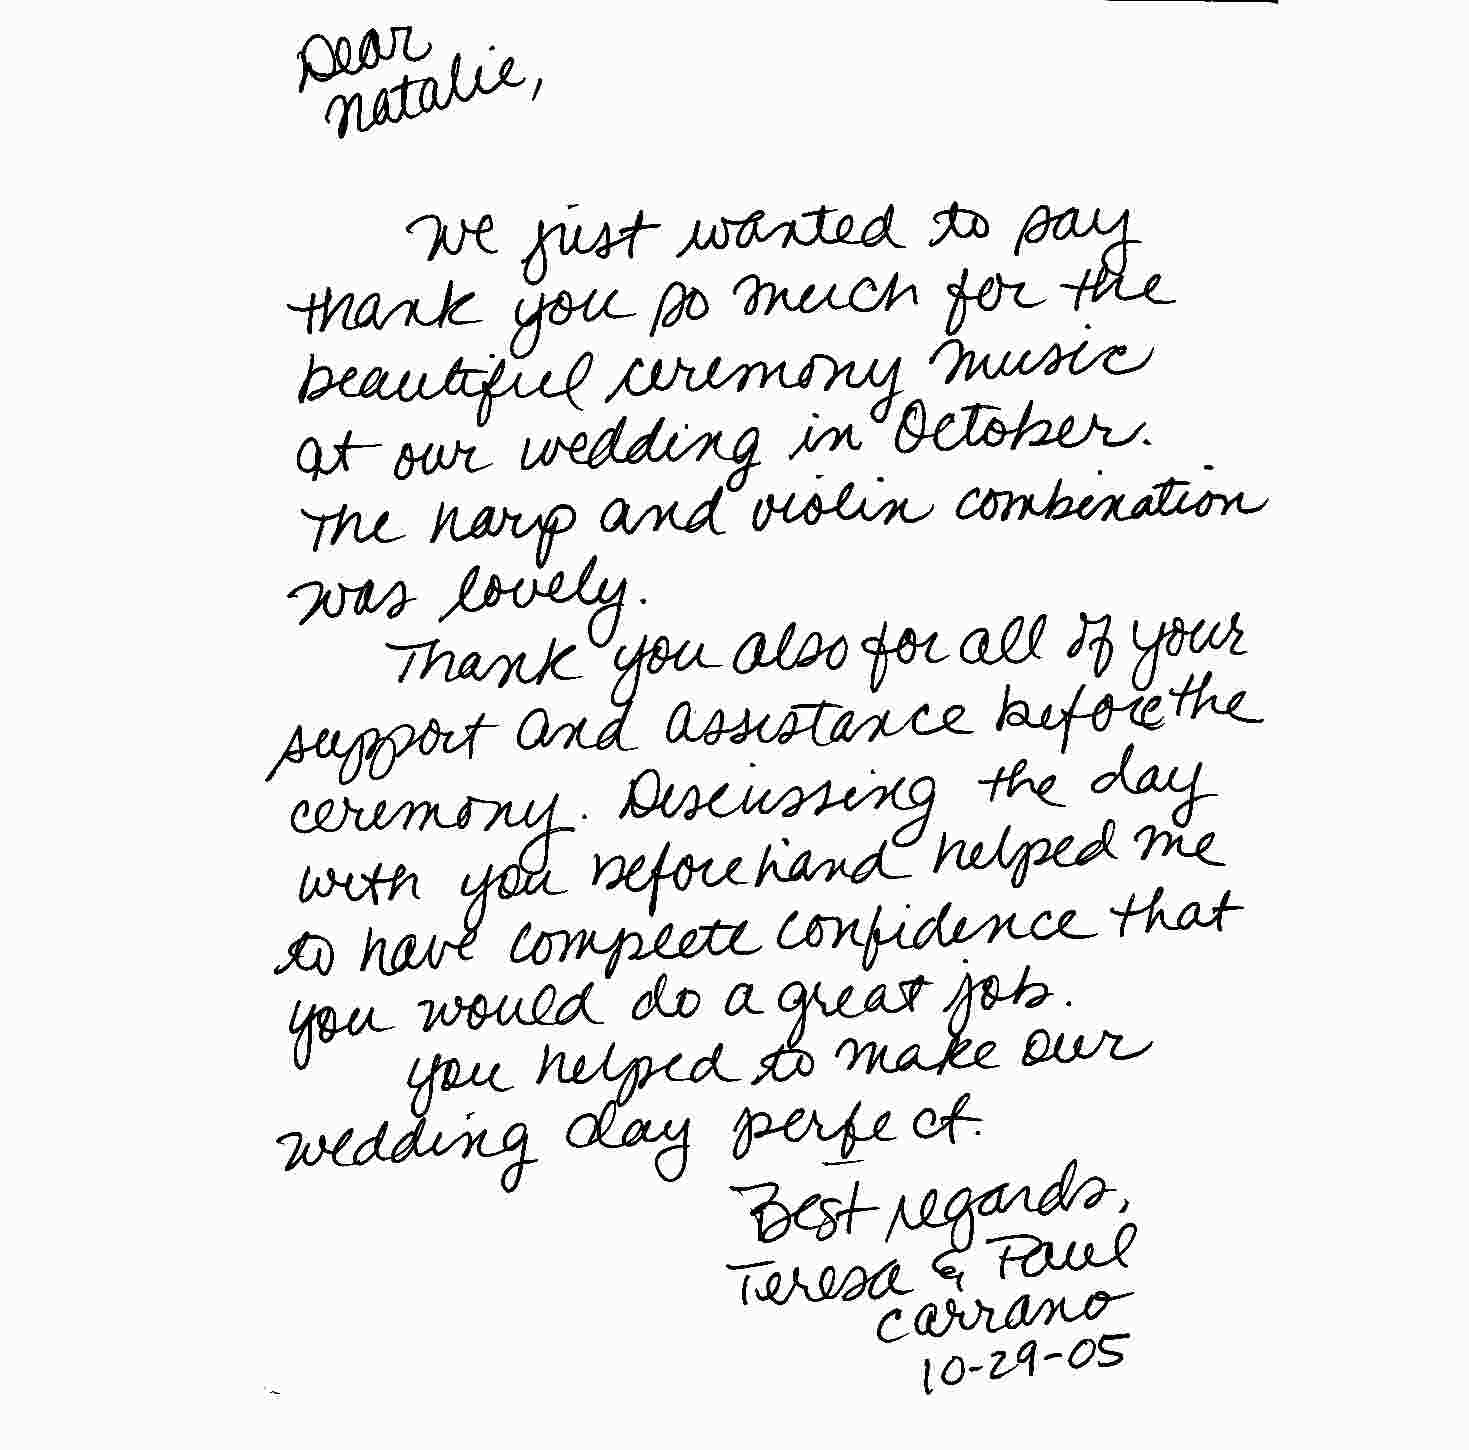 Dear
Natalie,
We just wanted to say
thank you so much for the
beautiful ceremony music
at our wedding in October.
The harp and violin combination
was lovely.
Thank you also for all of your
support and assistance before the
ceremony. Discussing the day
with you beforehand helped me
to have complete confidence that
you would do a great job.
You helped to make our
wedding day perfect.
Best regards,
Teresa & Paul
Carrano
10-29-05